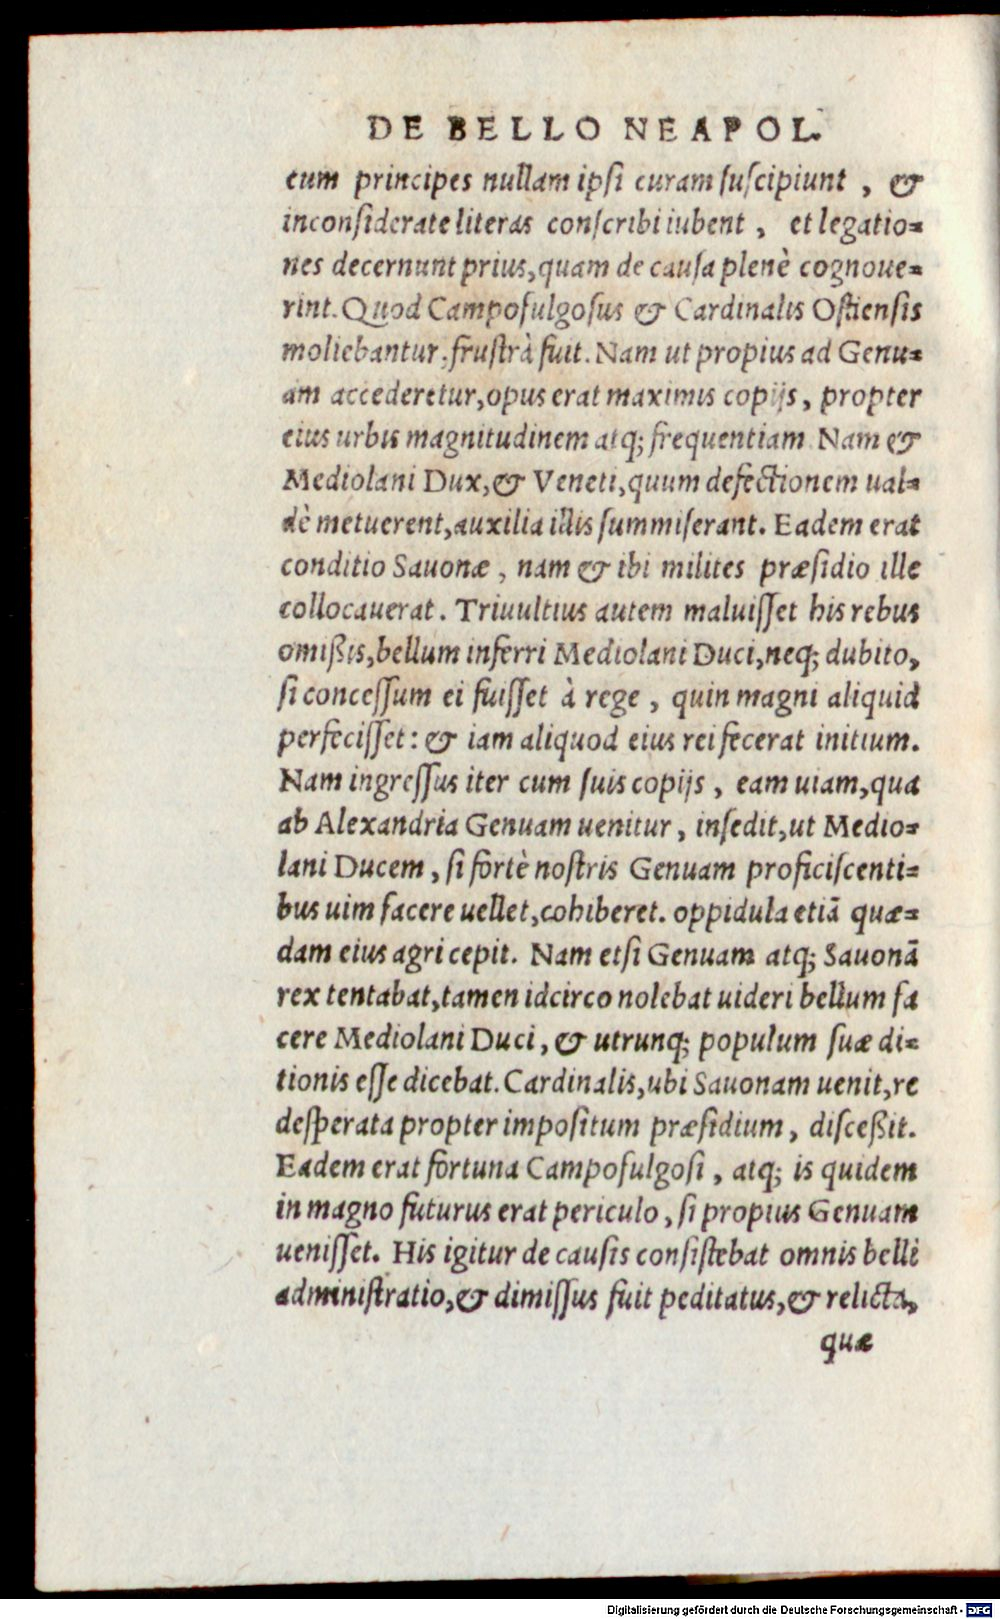 DE BELLO NEAPOL.
cum principes nullam ipsi curam suscipiunt , &
inconsiderate literas conscribi iubent , et legatio=
nes decernunt prius, quam de causa plenè cognoue=
rint. Quod Campofulgosus & Cardinalis Ostiensis
moliebantur, frustrà fuit. Nam ut propius ad Genu=
am accederetur, opus erat maximis copijs, propter
eius urbis magnitudinem atq; frequentiam Nam &
Mediolani Dux, & Veneti, quum defectionem ual=
dè metuerent, auxilia illis summiserant. Eadem erat
conditio Sauonæ , nam & ibi milites præsidio ille
collocauerat. Triuultius autem maluisset his rebus
omißis, bellum inferri Mediolani Duci, neq; dubito,
si concessum ei fuisset à rege , quin magni aliquid
perfecisset: & iam aliquod eius rei fecerat initium.
Nam ingressus iter cum suis copijs , eam uiam, qua
ab Alexandria Genuam uenitur , insedit, ut Medio=
lani Ducem , si fortè nostris Genuam proficiscenti=
bus uim facere uellet, cohiberet. oppidula etiā quæ=
dam eius agri cepit. Nam etsi Genuam atq; Sauonā
rex tentabat, tamen idcirco nolebat uideri bellum fa
cere Mediolani Duci , & utrunq; populum suæ di=
tionis esse dicebat. Cardinalis, ubi Sauonam uenit, re
desperata propter impositum præsidium , disceßit.
Eadem erat fortuna Campofulgosi , atq; is quidem
in magno futurus erat periculo , si propius Genuam
uenisset. His igitur de causis consistebat omnis belli
administratio, & dimissus fuit peditatus, & relicta,
quæ
Digitalisierung gefördert durch die Deutsche Forschungsgemeinschaft - DFG